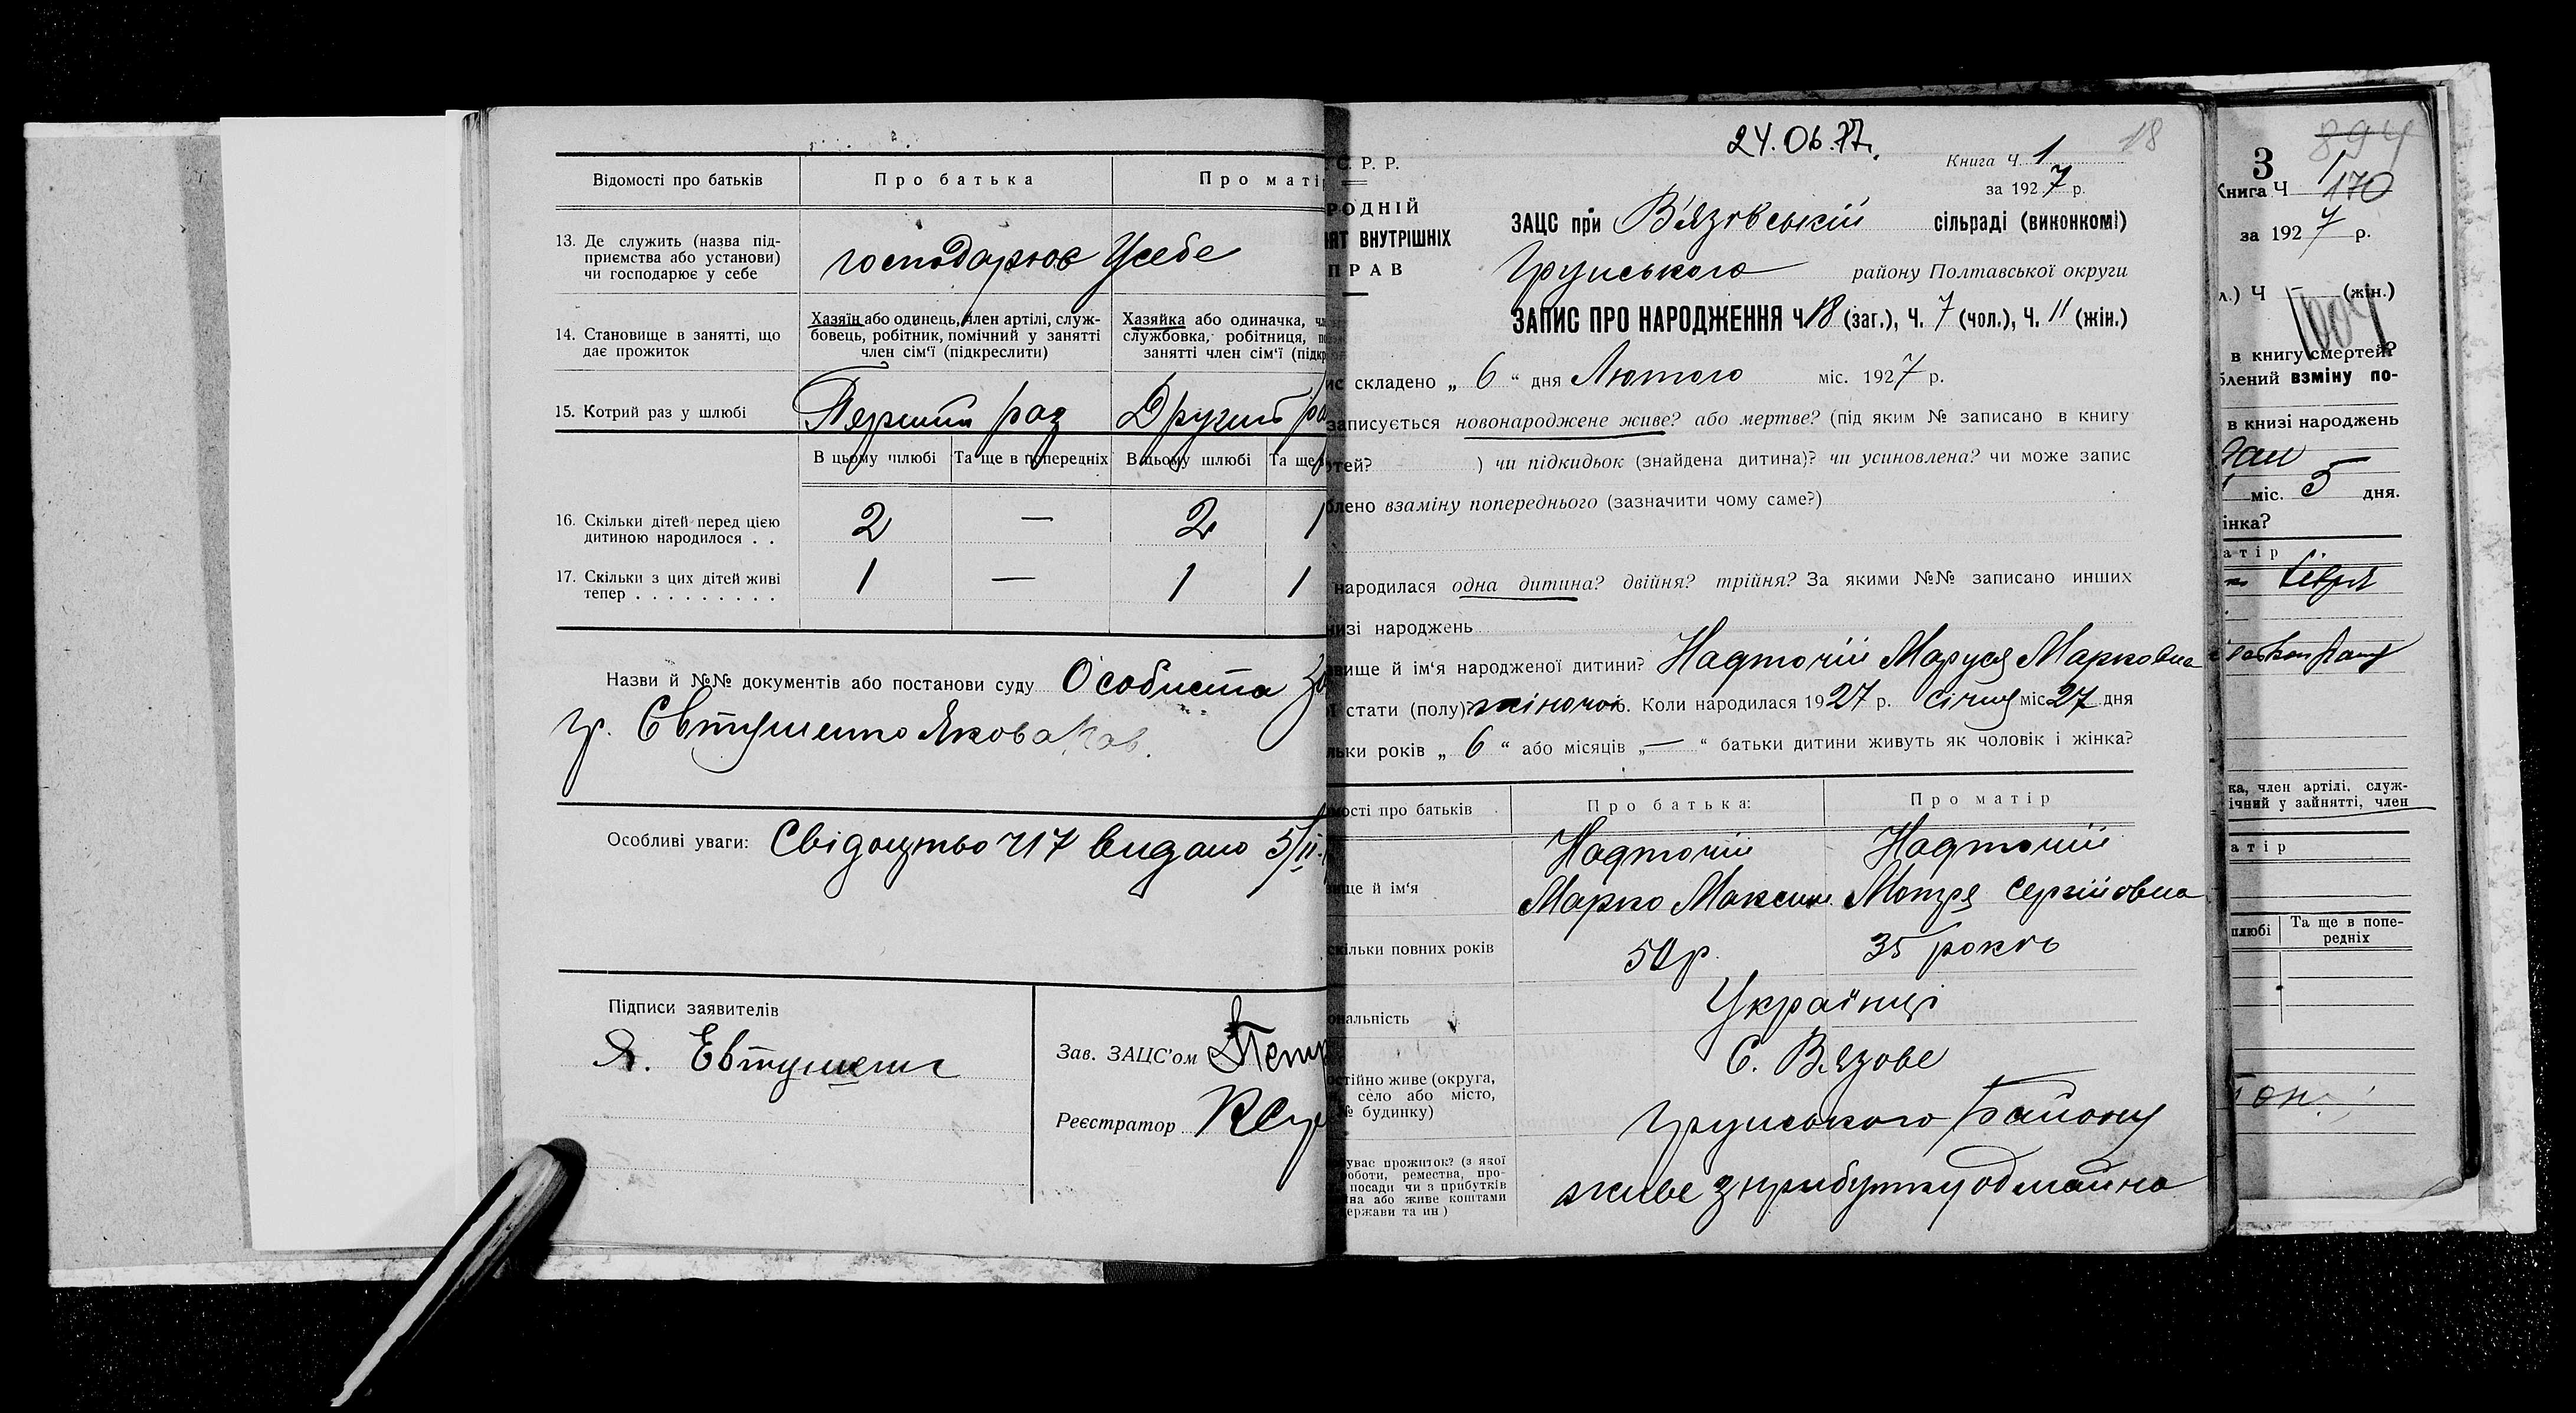 Відомості про батьків
Про батька
Про маті
13. Де служить (назва під-
приємства або установи)
чи господарює у себе
господарює Усебе
14. Становище в занятті, що
дає прожиток
Хазяїн або одинець, член артілі, служ-
бовець, робітник, помічний у занятті
член сім'ї (підкреслити)
Хазяйка або одиначка, чл
службовка, робітниця, п
занятті член сім'ї (підкр
15. Котрий раз у шлюбі
Перший раз
Другий ра
В цьому шлюбі
Та ще в попередніх
В цьому шлюбі
Та ще
16. Скільки дітей перед цією
дитиною народилося . .
2 — 2 1
17. Скільки з цих дітей живі
тепер . . . . . . . . .
1 — 1 1
Назви й №№ документів або постанови суду Особиста за
гр. Євтушенко Якова
Особливі уваги: Свідоцтво Ч 17 видано 5/II
Підписи заявителів
Я. Евтушенг
Зав. ЗАЦС'ом
Реєстратор
24.06.77г.
18
С. Р. Р.
РОДНІЙ
ЯТ ВНУТРІШНІХ
ПРАВ
Книга Ч. 1
за 1927 р.
ЗАЦС при В'язовській сільраді (виконкомі)
Груньського району Полтавської округи
ЗАПИС ПРО НАРОДЖЕННЯ Ч. 18 (заг.), Ч. 7 (чол.), Ч. 11 (жін.)
ис складено „ 6 “ дня Лютого міс. 1927 р.
записується новонароджене живе? або мертве? (під яким № записано в книгу
ртей? ) чи підкидьок (знайдена дитина)? чи усиновлена? чи може запис
блено взаміну попереднього (зазначити чому саме?)
народилася одна дитина? двійня? трійня? За якими №№ записано инших
низі народжень
вище й ім'я народженої дитини? Надточій Маруся Марковна
стати (полу)? жіночої. Коли народилася 1927 р. січня міс 27 дня
льки років „ 6 “ або місяців „ — “ батьки дитини живуть як чоловік і жінка?
мості про батьків
Про батька:
Про матір
вище й ім'я
Надточій
Марко Максим.
Надточій
Мотря Сергійовна
скільки повних років
50 р.
35 років
ональність
Українці
остійно живе (округа,
село або місто,
№ будинку)
С. В'язове
Груньського Району
уває прожиток? (з якої
роботи, ремества, про-
посади чи з прибутків
йна або живе коштами
ержави та ин)
живе з прибутку од майна
3
894
Книга Ч 1
170
за 1927 р.
л.) Ч — (жін.)
1004
в книгу смертей?
блений взміну по-
в книзі народжень
міс. 5 дня.
інка?
атір
ка, член артілі, служ-
ічний у зайнятті, член
атір
шлюбі
Та ще в попе-
редніх